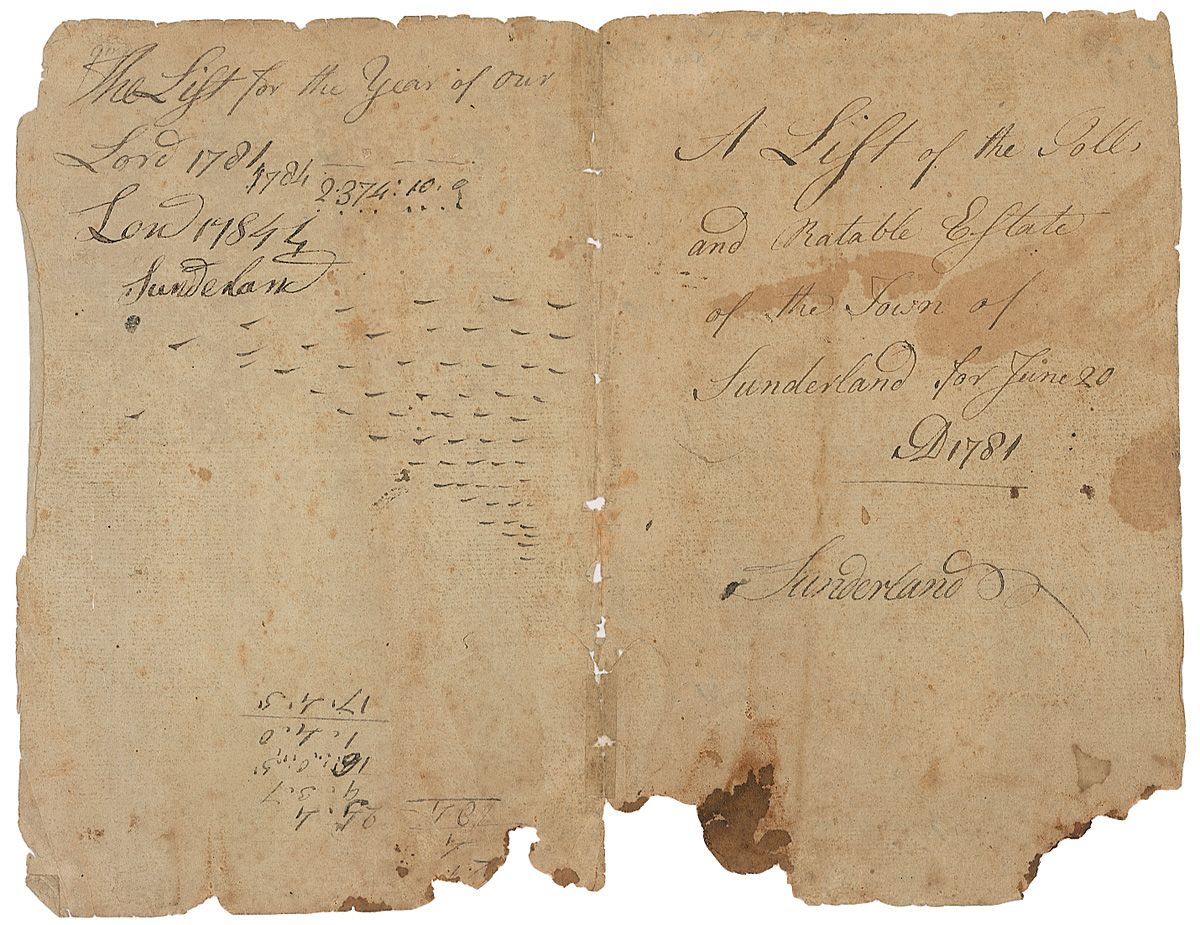 The List for the Year of our
Lord 1781
1784
2:374:10:9
Lord 1784 4
Sunderland
17:4:5
1:4:0
4:3:7
A List of the Polls
and Ratable Estate
of the Town of
Sunderland for June 20
AD 1781
Sunderland